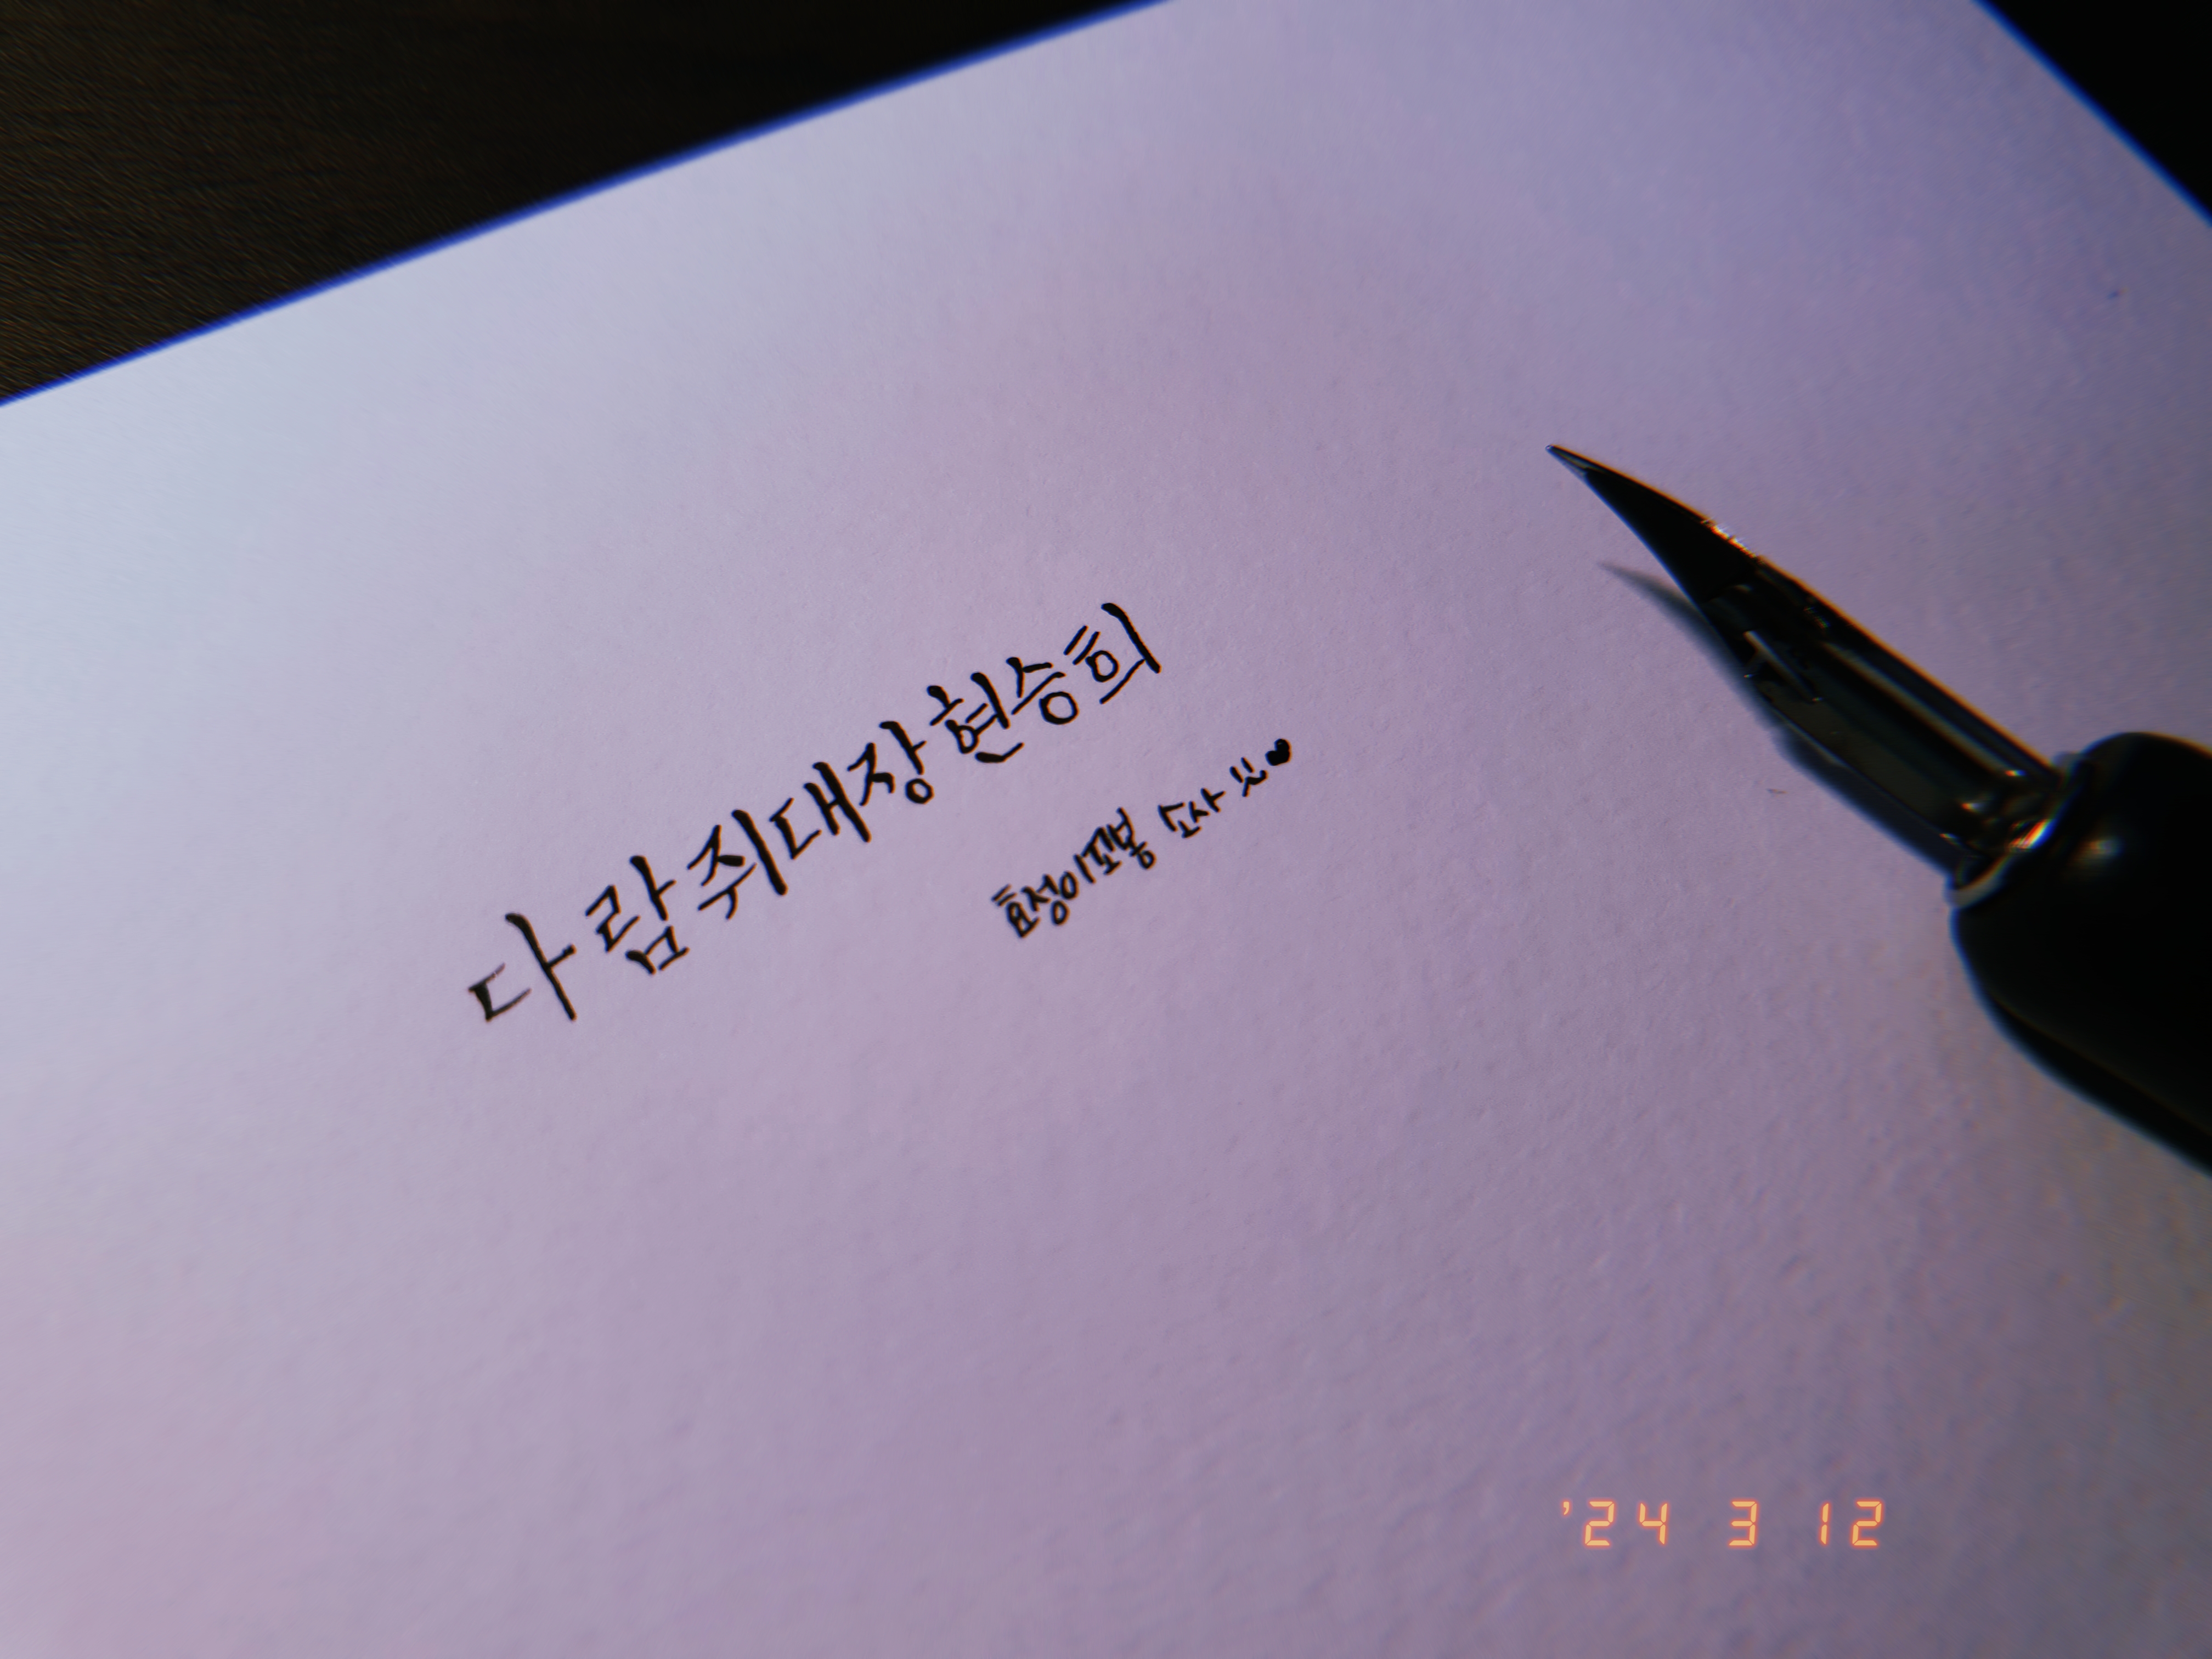 다람쥐대장현승희
효정이포뇽 소사 씀♥
'24 3 12